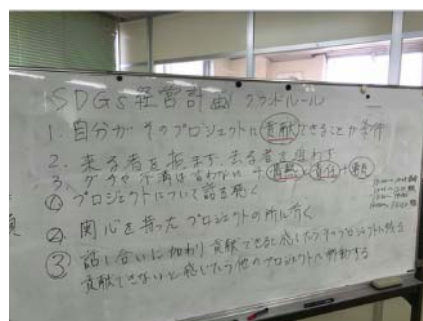 SDGs経営計画 グランドルール
1. 自分がそのプロジェクトに貢献できることが条件
2. 来る者を拒まず、去る者を追わず
3. グチや不満は言わない →
① プロジェクトについて話を聴く
② 関心を持ったプロジェクトの所に行く
③ 話し合いに加わり貢献できると感じたらそのプロジェクトに
貢献できないと感じたら他のプロジェクトへ移動する